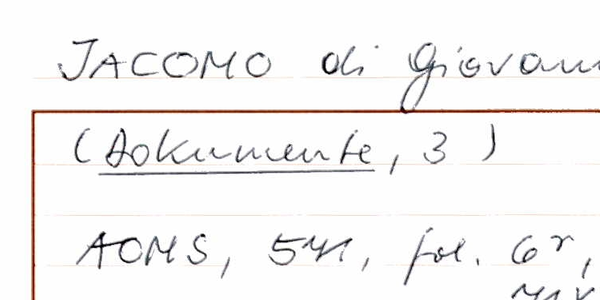 JACOMO di Giovan
(Dokumente, 3)
AOMS, 541, fol. 6r,